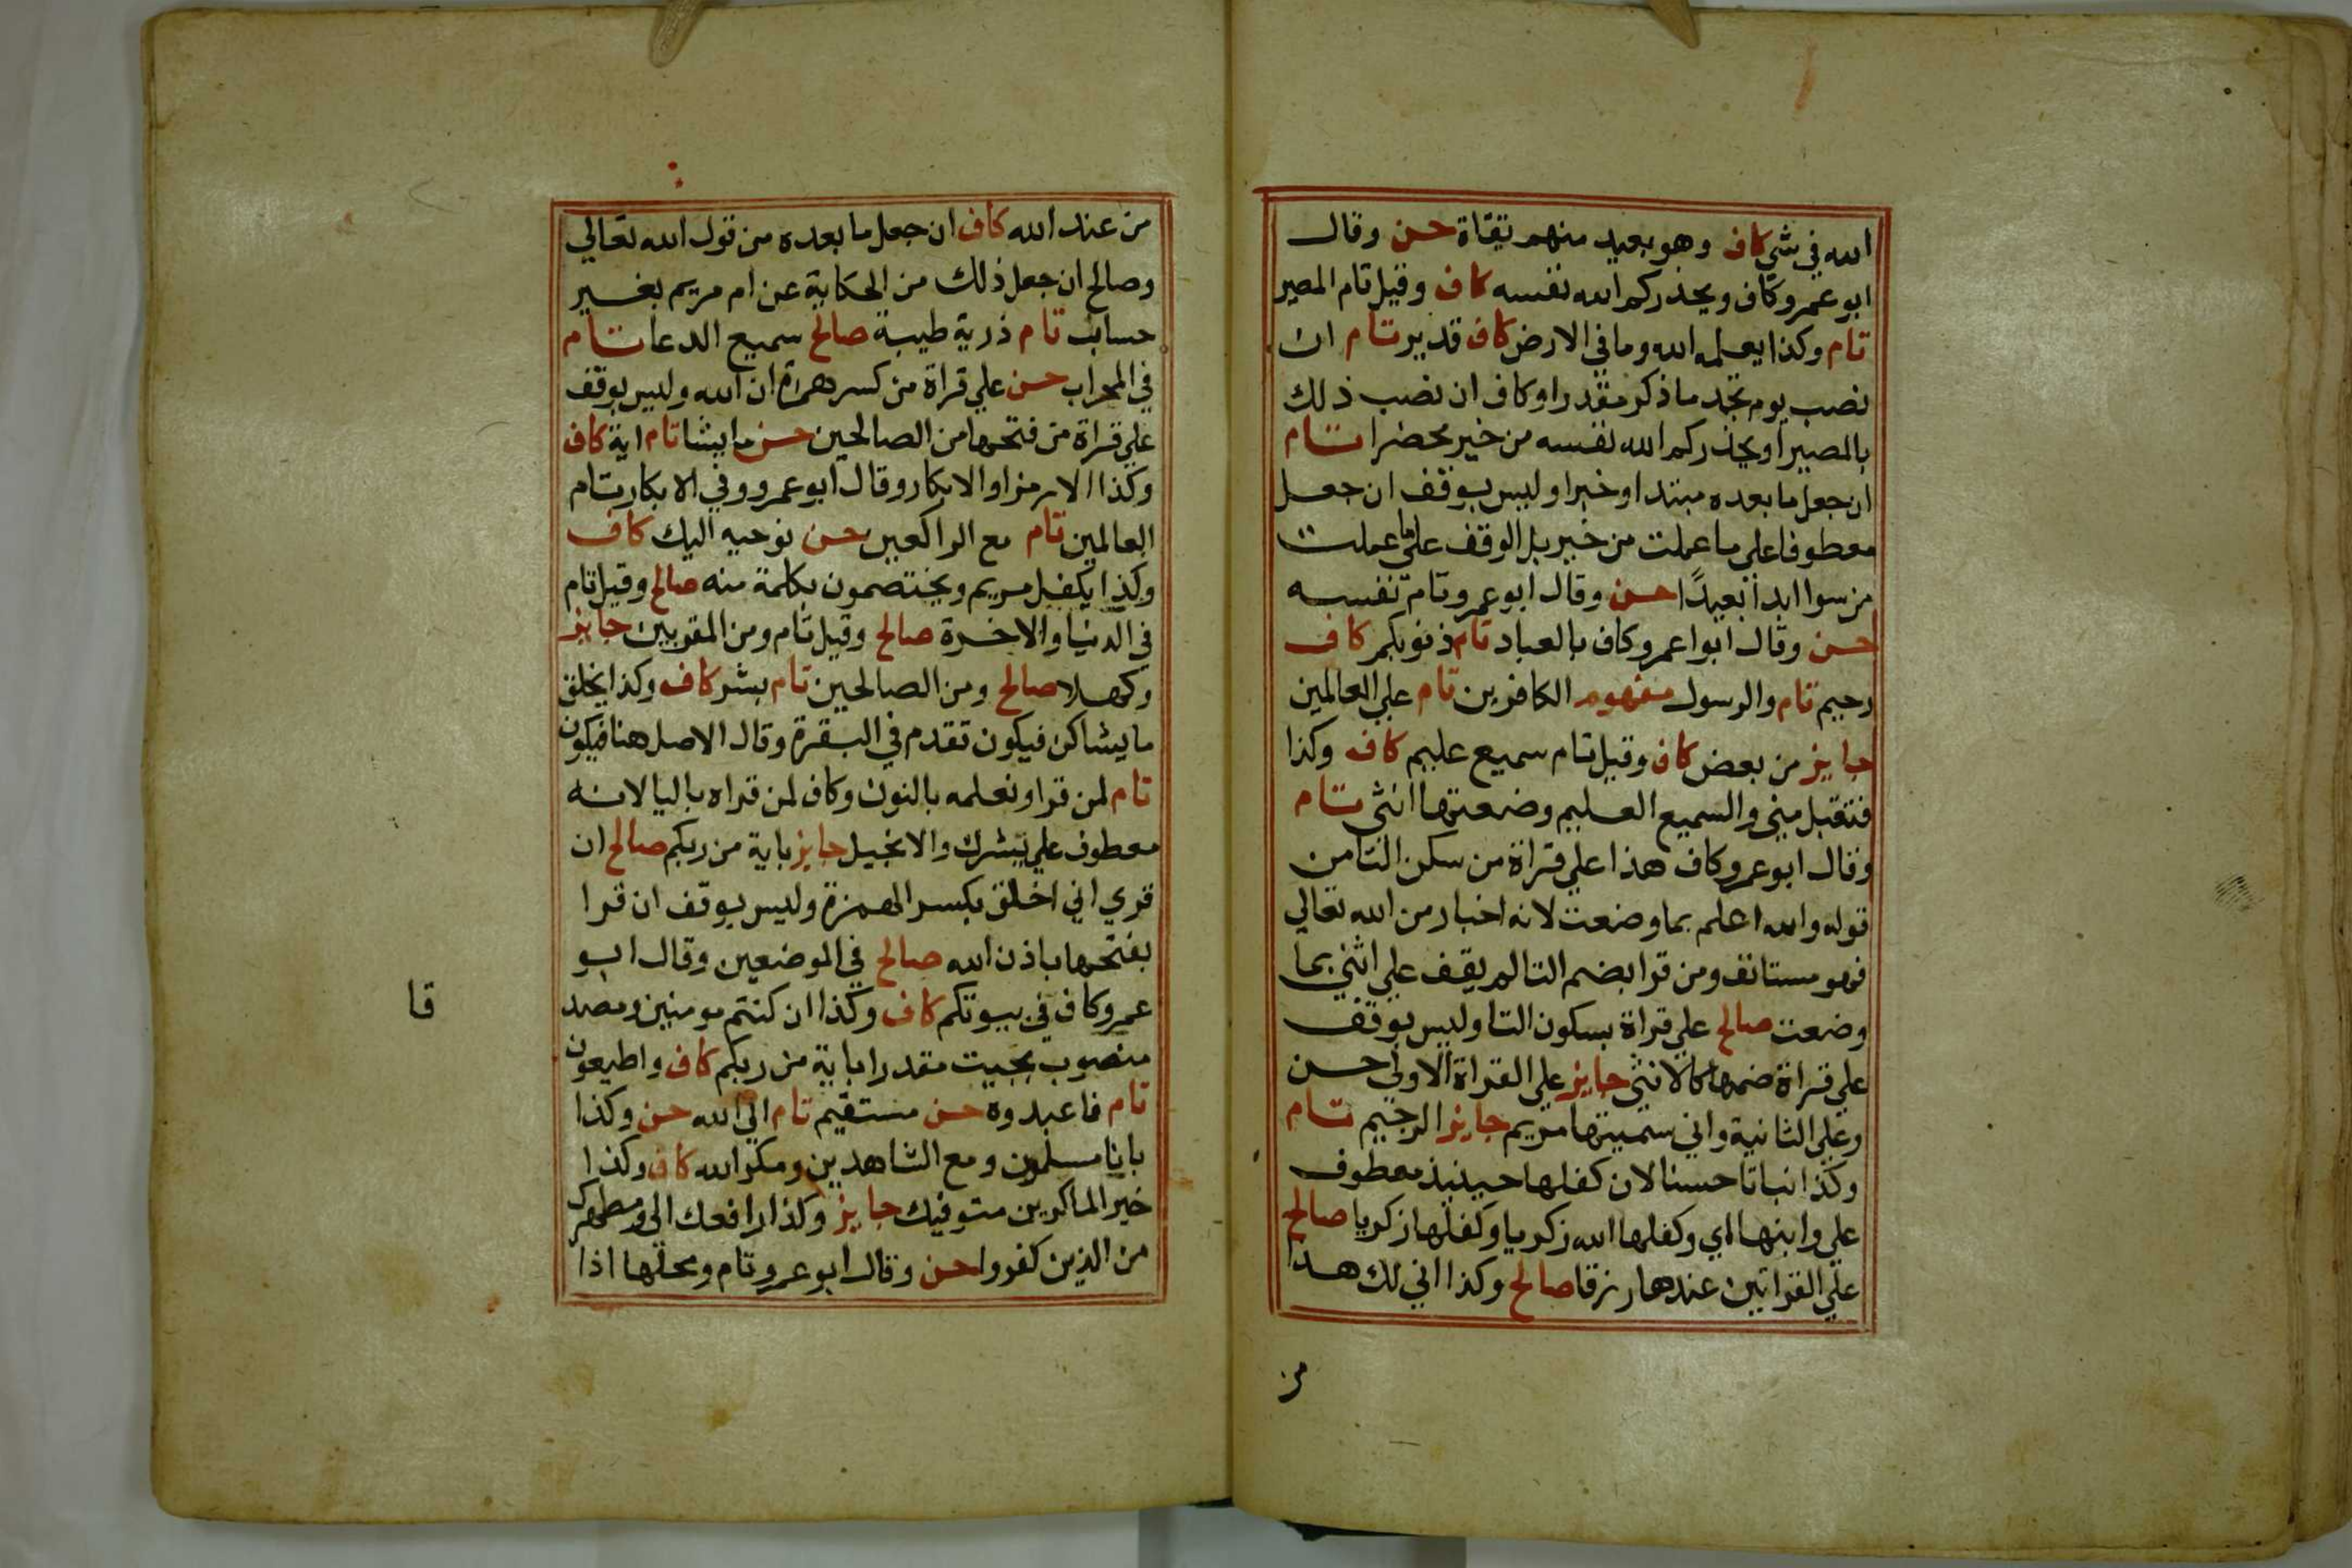 الله في شي كاف وهو بعيد منهم تقاة حسن وقال
ابو عمرو كاف ويحذركم الله نفسه كاف وقيل تام المصير
تام وكذا يعلمه الله وما في الارض كاف قدير تام ان
نصب يوم تجد ما ذكر مقدرا وكاف ان نصب ذلك
بالمصير او يحذركم الله نفسه من خير محضرا تام
ان جعل ما بعده مبتدا وخبرا وليس بوقف ان جعل
معطوفا علي ما عملت من خير بل الوقف علي ما عملت
من سوا ابدا بعيدًا حسن وقال ابو عمرو تام نفسه
حسن وقال ابوا عمرو كاف بالعباد تام ذنوبكم كاف
رحيم تام والرسول مفهوم الكافرين تام علي العالمين
جايز من بعض كاف وقيل تام سميع عليم كاف وكذا
فتقبل مني والسميع العليم وضعتها انثي تام
وقال ابو عمرو كاف هذا علي قراة من سكن التا من
قوله والله اعلم بما وضعت لانه اخبار من الله تعالي
فهو مستانف ومن قرا بضم التا لم يقف علي انثي بما
وضعت صالح علي قراة بسكون التا وليس بوقف
علي قراة ضمها كالانثي جايز علي القراة الاولي حسن
وعلي الثانية واني سميتها مريم جايز الرجيم تام
وكذا نباتا حسنا لان كفلها حينيذ معطوف
علي وابنها اي وكفلها الله زكريا وكفلها زكريا صالح
علي القراتين عندها رزقا صالح وكذا اني لك هذا
من
من عند الله كاف ان جعل ما بعده من قول الله تعالي
وصالح ان جعل ذلك من الحكاية عن ام مريم بغير
حساب تام ذرية طيبة صالح سميع الدعا تام
في المحراب حسن علي قراة من كسر همزة ان الله وليس بوقف
علي قراة من فتحها من الصالحين حسن ما يشا تام اية كاف
وكذا الا رمزا والابكار وقال ابو عمرو وفي الابكار تام
العالمين تام مع الراكعين حسن نوحيه اليك كاف
وكذا يكفل مريم ويختصمون بكلمة منه صالح وقيل تام
في الدنيا والاخرة صالح وقيل تام ومن المقربين جايز
وكهلا صالح ومن الصالحين تام بشر كاف وكذا يخلق
ما يشا كن فيكون تقدم في البقرة وقال الاصل هنا فيكون
تام لمن قرا ونعلمه بالنون وكاف لمن قراه باليا لانه
معطوف علي يبشرك والانجيل جايز باية من ربكم صالح ان
قري اني اخلق بكسر الهمزة وليس بوقف ان قرا
بفتحها باذن الله صالح في الموضعين وقال ابو
عمرو كاف في بيوتكم كاف وكذا ان كنتم مومنين ومصد
قا
منصوب بجيت مقدرا باية من ربكم كاف واطيعون
تام فاعبدوه حسن مستقيم تام الي الله حسن وكذا
بانا مسلمون ومع الشاهدين ومكر الله كاف وكذا
خير الماكرين متوفيك جايز وكذا رافعك الي ومطهرك
من الذين كفروا حسن وقال ابو عمرو تام ومحلها اذا